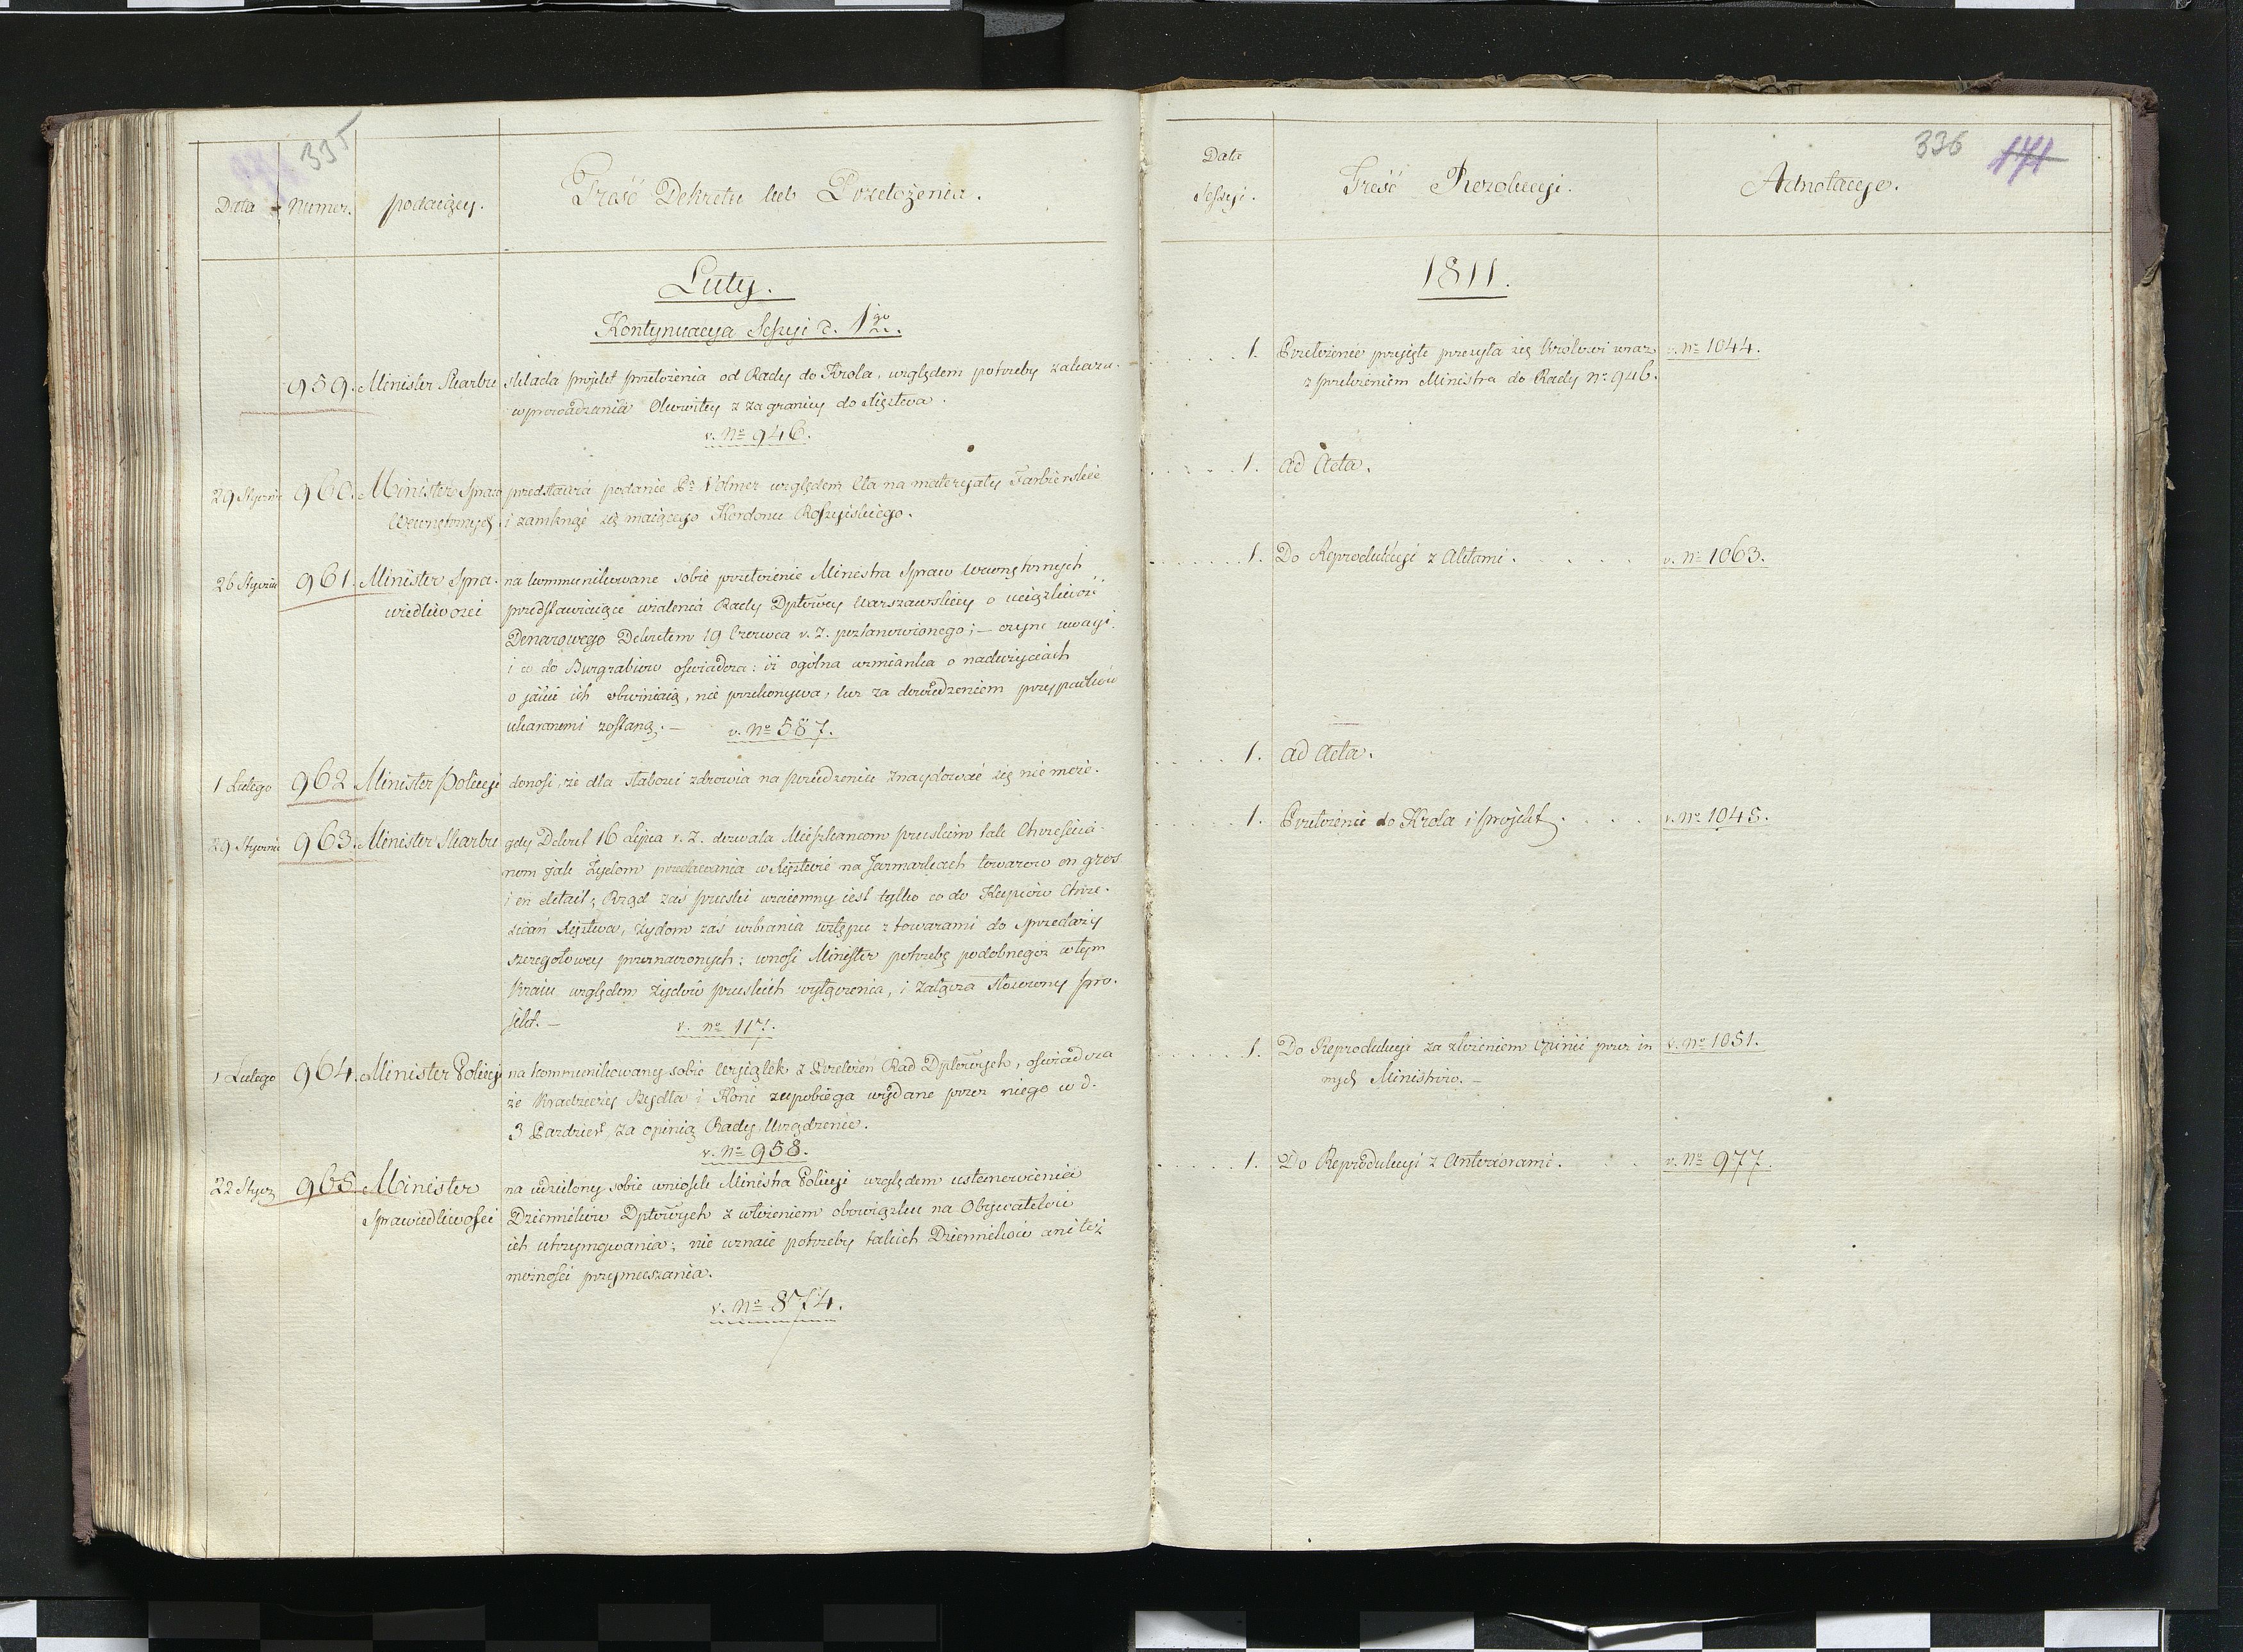 335
Data
Numer.
podaiący.
Treść Dekretu lub Przełożenia.
Luty.
Kontynuacya Sessyi d. 1go
959. Minister Skarbu składa projekt przełożenia od Rady do Króla, względem potrzeby zakazu
wprowadzania Okowitey z zagranicy do Xięstwa.
v. No 946.
29 Stycznia 960. Minister Spraw przedstawia podanie Po Volmer względem Cła na materyały Farbierskie
Wewnętrznych i zamknąć się maiącego Kordonu Rossyiskiego.
26 Stycznia 961. Minister Spra- na kommunikowane sobie przełożenie Ministra Spraw Wewnętrznych
wiedliwości przedstawiaiące Rady Dptowey Warszawskiey o uciążliwość
Denarowego Dekretem 19 Czerwca r. z. postanowionego; — czyni uwagi.
i co do Burgrabiow oświadcza: iż ogólna wzmianka o nadużyciach
o jakie ich obwiniaią, nie przekonywa, lecz za dowiedzeniem przypadków
ukaranemi zostaną. — v. No 587.
1 Lutego 962 Minister Policyi donosi, że dla słabości zdrowia na posiedzeniu znaydować się nie może.
29 Stycznia 963. Minister Skarbu gdy Dekret 16 Lipca r. z. dozwala Mieszkancom pruskim tak Chrześcia-
nom jak Żydom przedawania w Xięztwie na Jarmarkach towarow en gros
i en detail; Rząd zaś pruski wzaiemny iest tylko co do Kupców Chrze-
ścian Xięztwa, żydom zaś wzbrania wstępu z towarami do sprzedaży
szczegółowey przeznaczonych: wnosi Minister potrzebę podobnegoż w tym
Kraiu względem żydów pruskich wyłączenia, i załącza stosowny pro-
jekt. — v. No 117.
1 Lutego 964. Minister Policyi na kommunikowany sobie Wyiątek z Przełożeń Rad Dptowych, oświadcza
że Kradzieży Bydła i Koni zapobiega wydane przez niego w d.
3 Pazdzier. za opinią Rady Urządzenie.
v. No 958.
22 Stycz 965 Minister na udzielony sobie wniosek Ministra Policyi względem ustanowienia
Sprawiedliwości Dzienników Dptowych z włożeniem obowiązku na Obywatelow
ich utrzymywania; nie uznaie potrzeby takich Dzienników ani też
możności przymuszania.
v. No 874.
336 171
Data
Sessyi.
Treść Rezolucyi.
Adnotacye.
1811.
1. Przełożenie przyjęte przesyła się Królowi wraz v. No 1044.
z przełożeniem Ministra do Rady No 946.
1. ad Acta.
1. Do Reprodukcyi z Aktami. v. No 1063.
1. ad Acta.
1. Przełożenie do Króla i projekt v. No 1045.
1. Do Reprodukcyi za złożeniem Opinii przez in v. No 1051.
nych Ministrów. —
1. Do Reprodukcyi z Anteriorami. v. No 977.